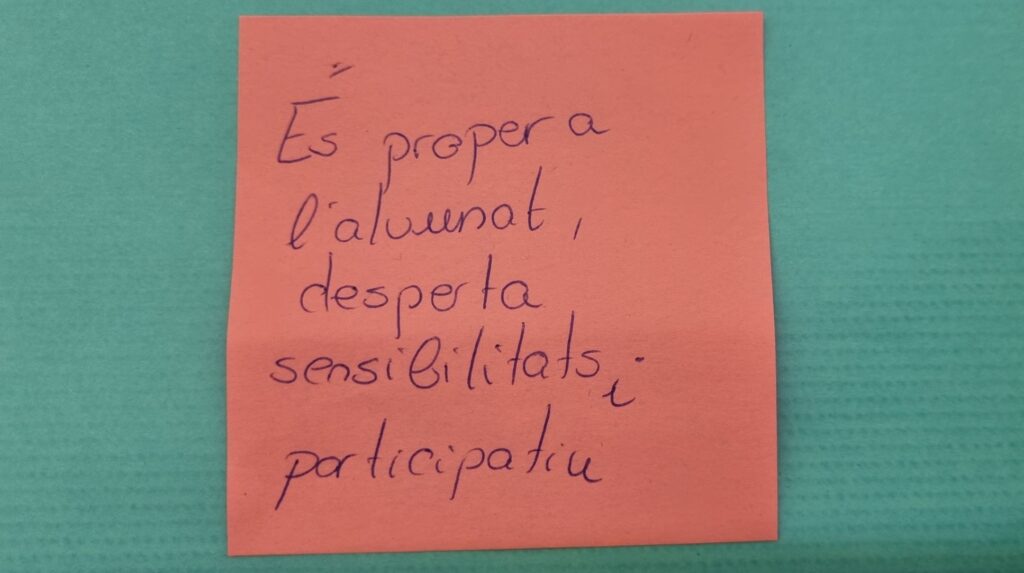 És proper a
l'alumnat,
desperta
sensibilitats i
participatiu